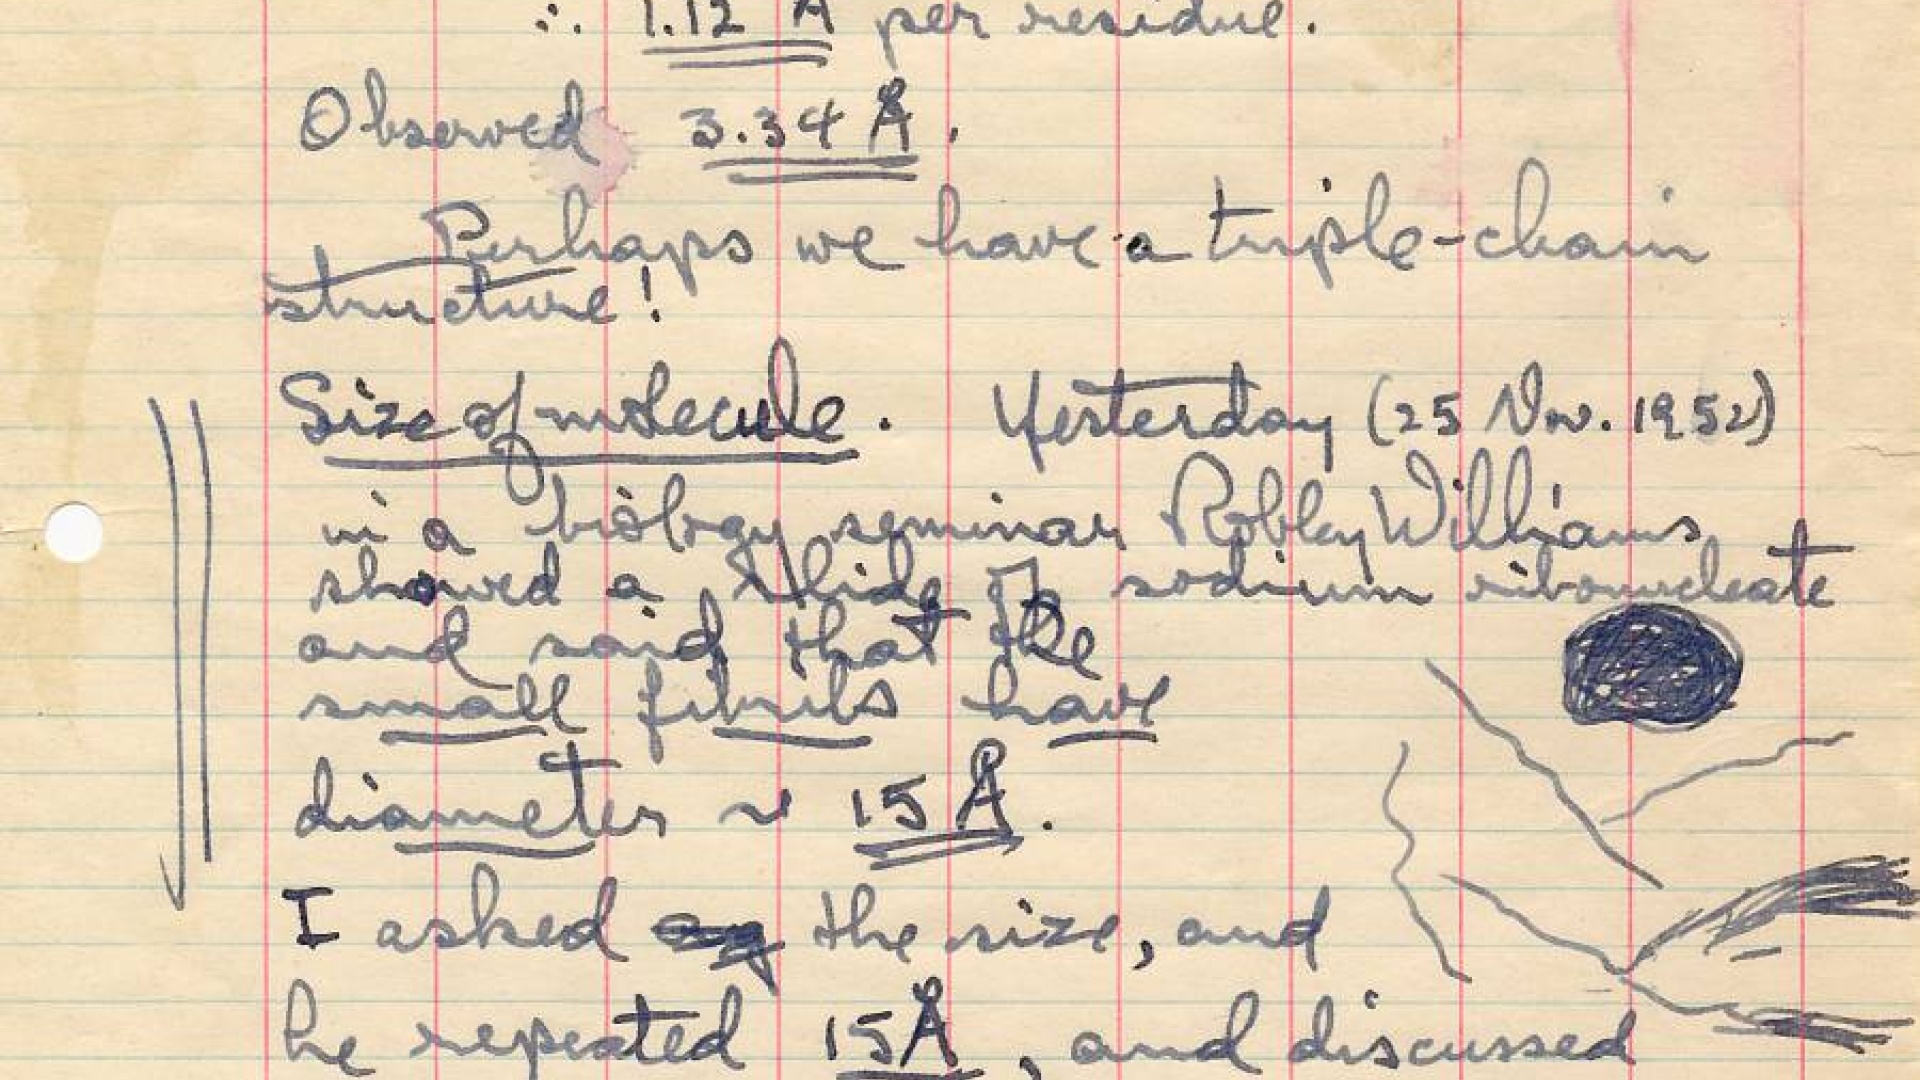 ∴ 1.12 Å per residue.
Observed 3.34 Å.
Perhaps we have a triple-chain
structure!
Size of molecule. Yesterday (25 Nov. 1952)
in a biology seminar Robley Williams
showed a slide of sodium ribonucleate
and said that the
small fibrils have
diameter ~ 15 Å.
I asked the size, and
he repeated 15 Å, and discussed